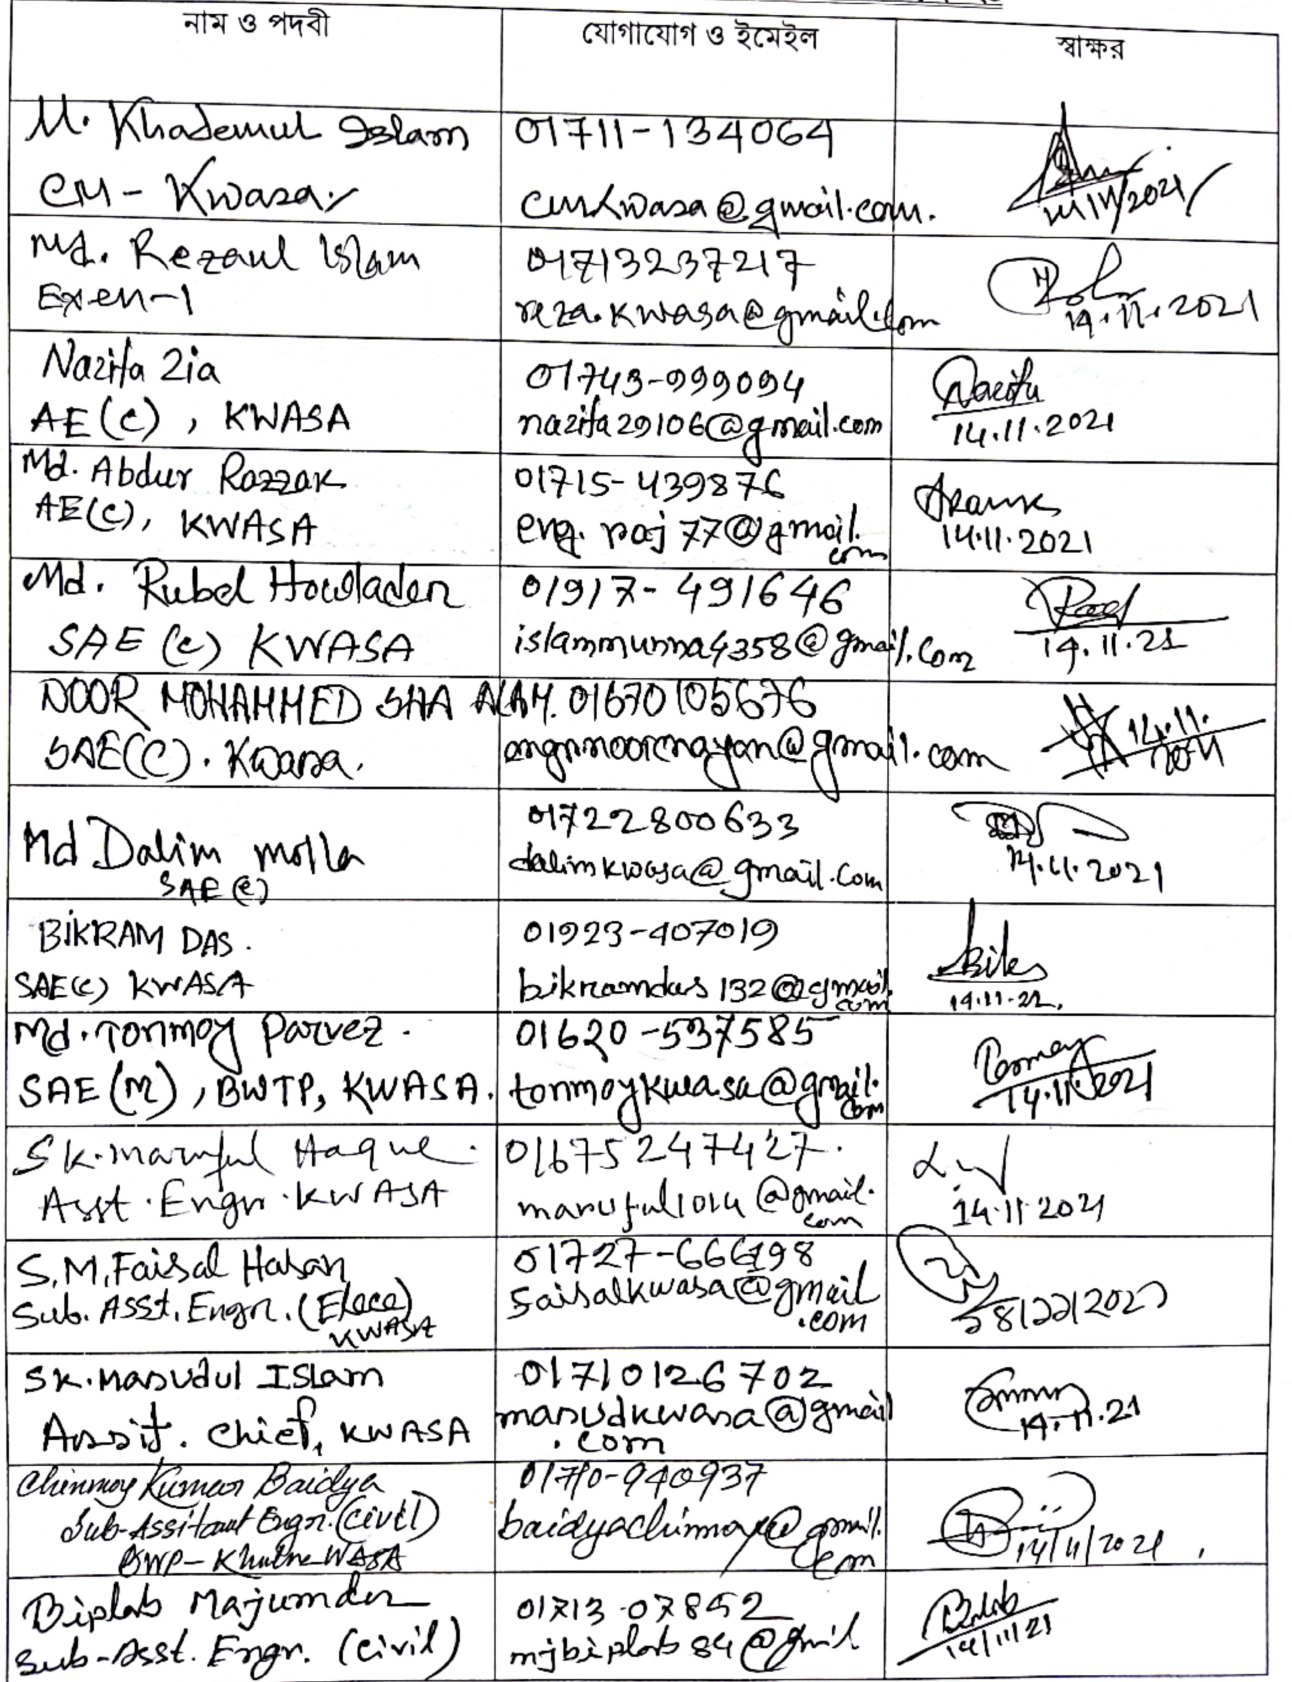 নাম ও পদবী
যোগাযোগ ও ইমেইল
স্বাক্ষর
M. Khademul Islam
CM - Kwasa
01711-134064
cmkwasa@gmail.com.
Md. Rezaul Islam
Exen-1
01713237217
reza.kwasa@gmail.com
14.11.2021
Nazifa Zia
AE (C), KWASA
01743-999094
nazifa29106@gmail.com
Nazifa
14.11.2021
Md. Abdur Razzak
AE(C), KWASA
01715-439876
eng.raj77@gmail.
com
14.11.2021
Md. Rubel Howlader
SAE (C) KWASA
01917-491646
islammunna4358@gmail.com
14.11.21
NOOR MOHAMMED SHA ALAM.
SAE(C). Kwasa.
01670105676
engrnoornayan@gmail.com
14.11.
2021
Md Dalim molla
SAE (C)
01722800633
dalimkwasa@gmail.com
14.11.2021
BIKRAM DAS.
SAE(C) KWASA
01923-407019
bikramdas132@gmail.
com
14.11.21.
Md. Tonmoy Parvez.
SAE (M), BWTP, KWASA.
01620-537585
tonmoykwasa@gmail.
com
Tonmoy
14.11.2021
Sk. maruful Haque.
Asst. Engr. KWASA
01675247427.
maruful1014@gmail.
com
14.11.2021
S.M.Faisal Hasan
Sub. Asst. Engr. (Elece)
KWASA
01727-666198
faisalkwasa@gmail
.com
১৪/১১/২০২১
SK. Masudul ISLam
Assit. Chief, KWASA
01710126702
masudkwasa@gmail
.com
14.11.21
Chinmoy Kumar Baidya
Sub-Assitant Engr. (Civil)
BWP-Khulna WASA
01710-940937
baidyachinmoy@gmail.
com
14/11/2021
Biplab Majumder
Sub-Asst. Engr. (Civil)
01713-07852
mjbiplab84@gmil
Biplab
14/11/21